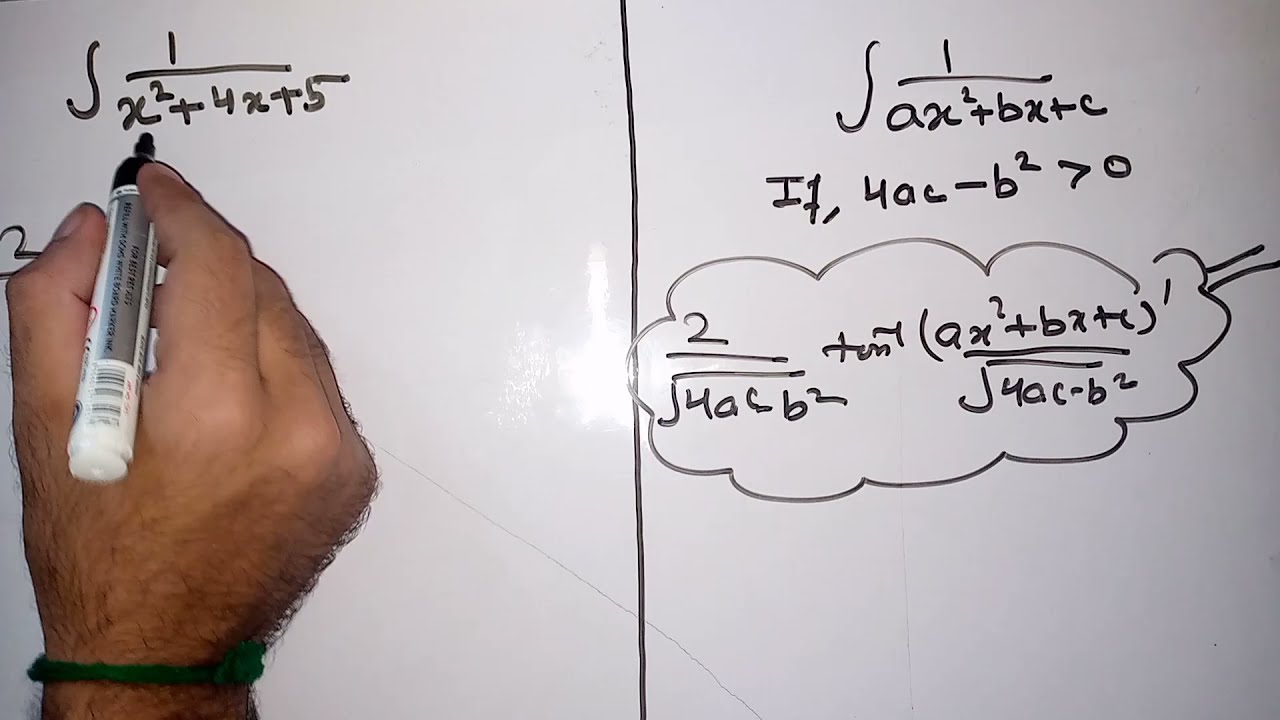 ∫ 1
x²+4x+5
2
∫ 1
ax²+bx+c
If, 4ac-b²>0
2
√4ac-b²
tan⁻¹ (ax²+bx+c)'
√4ac-b²